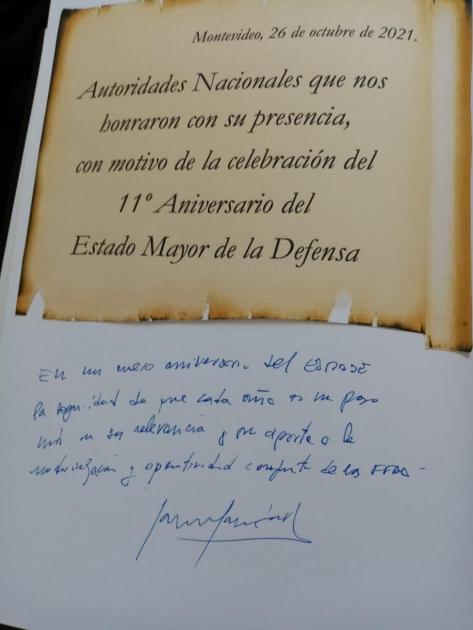 Montevideo, 26 de octubre de 2021.
Autoridades Nacionales que nos
honraron con su presencia,
con motivo de la celebración del
11º Aniversario del
Estado Mayor de la Defensa
En un nuevo aniversario del ESMADE
la seguridad de que cada año es un paso
más en su relevancia y su aporte a la
y operatividad conjunta de las FFAA